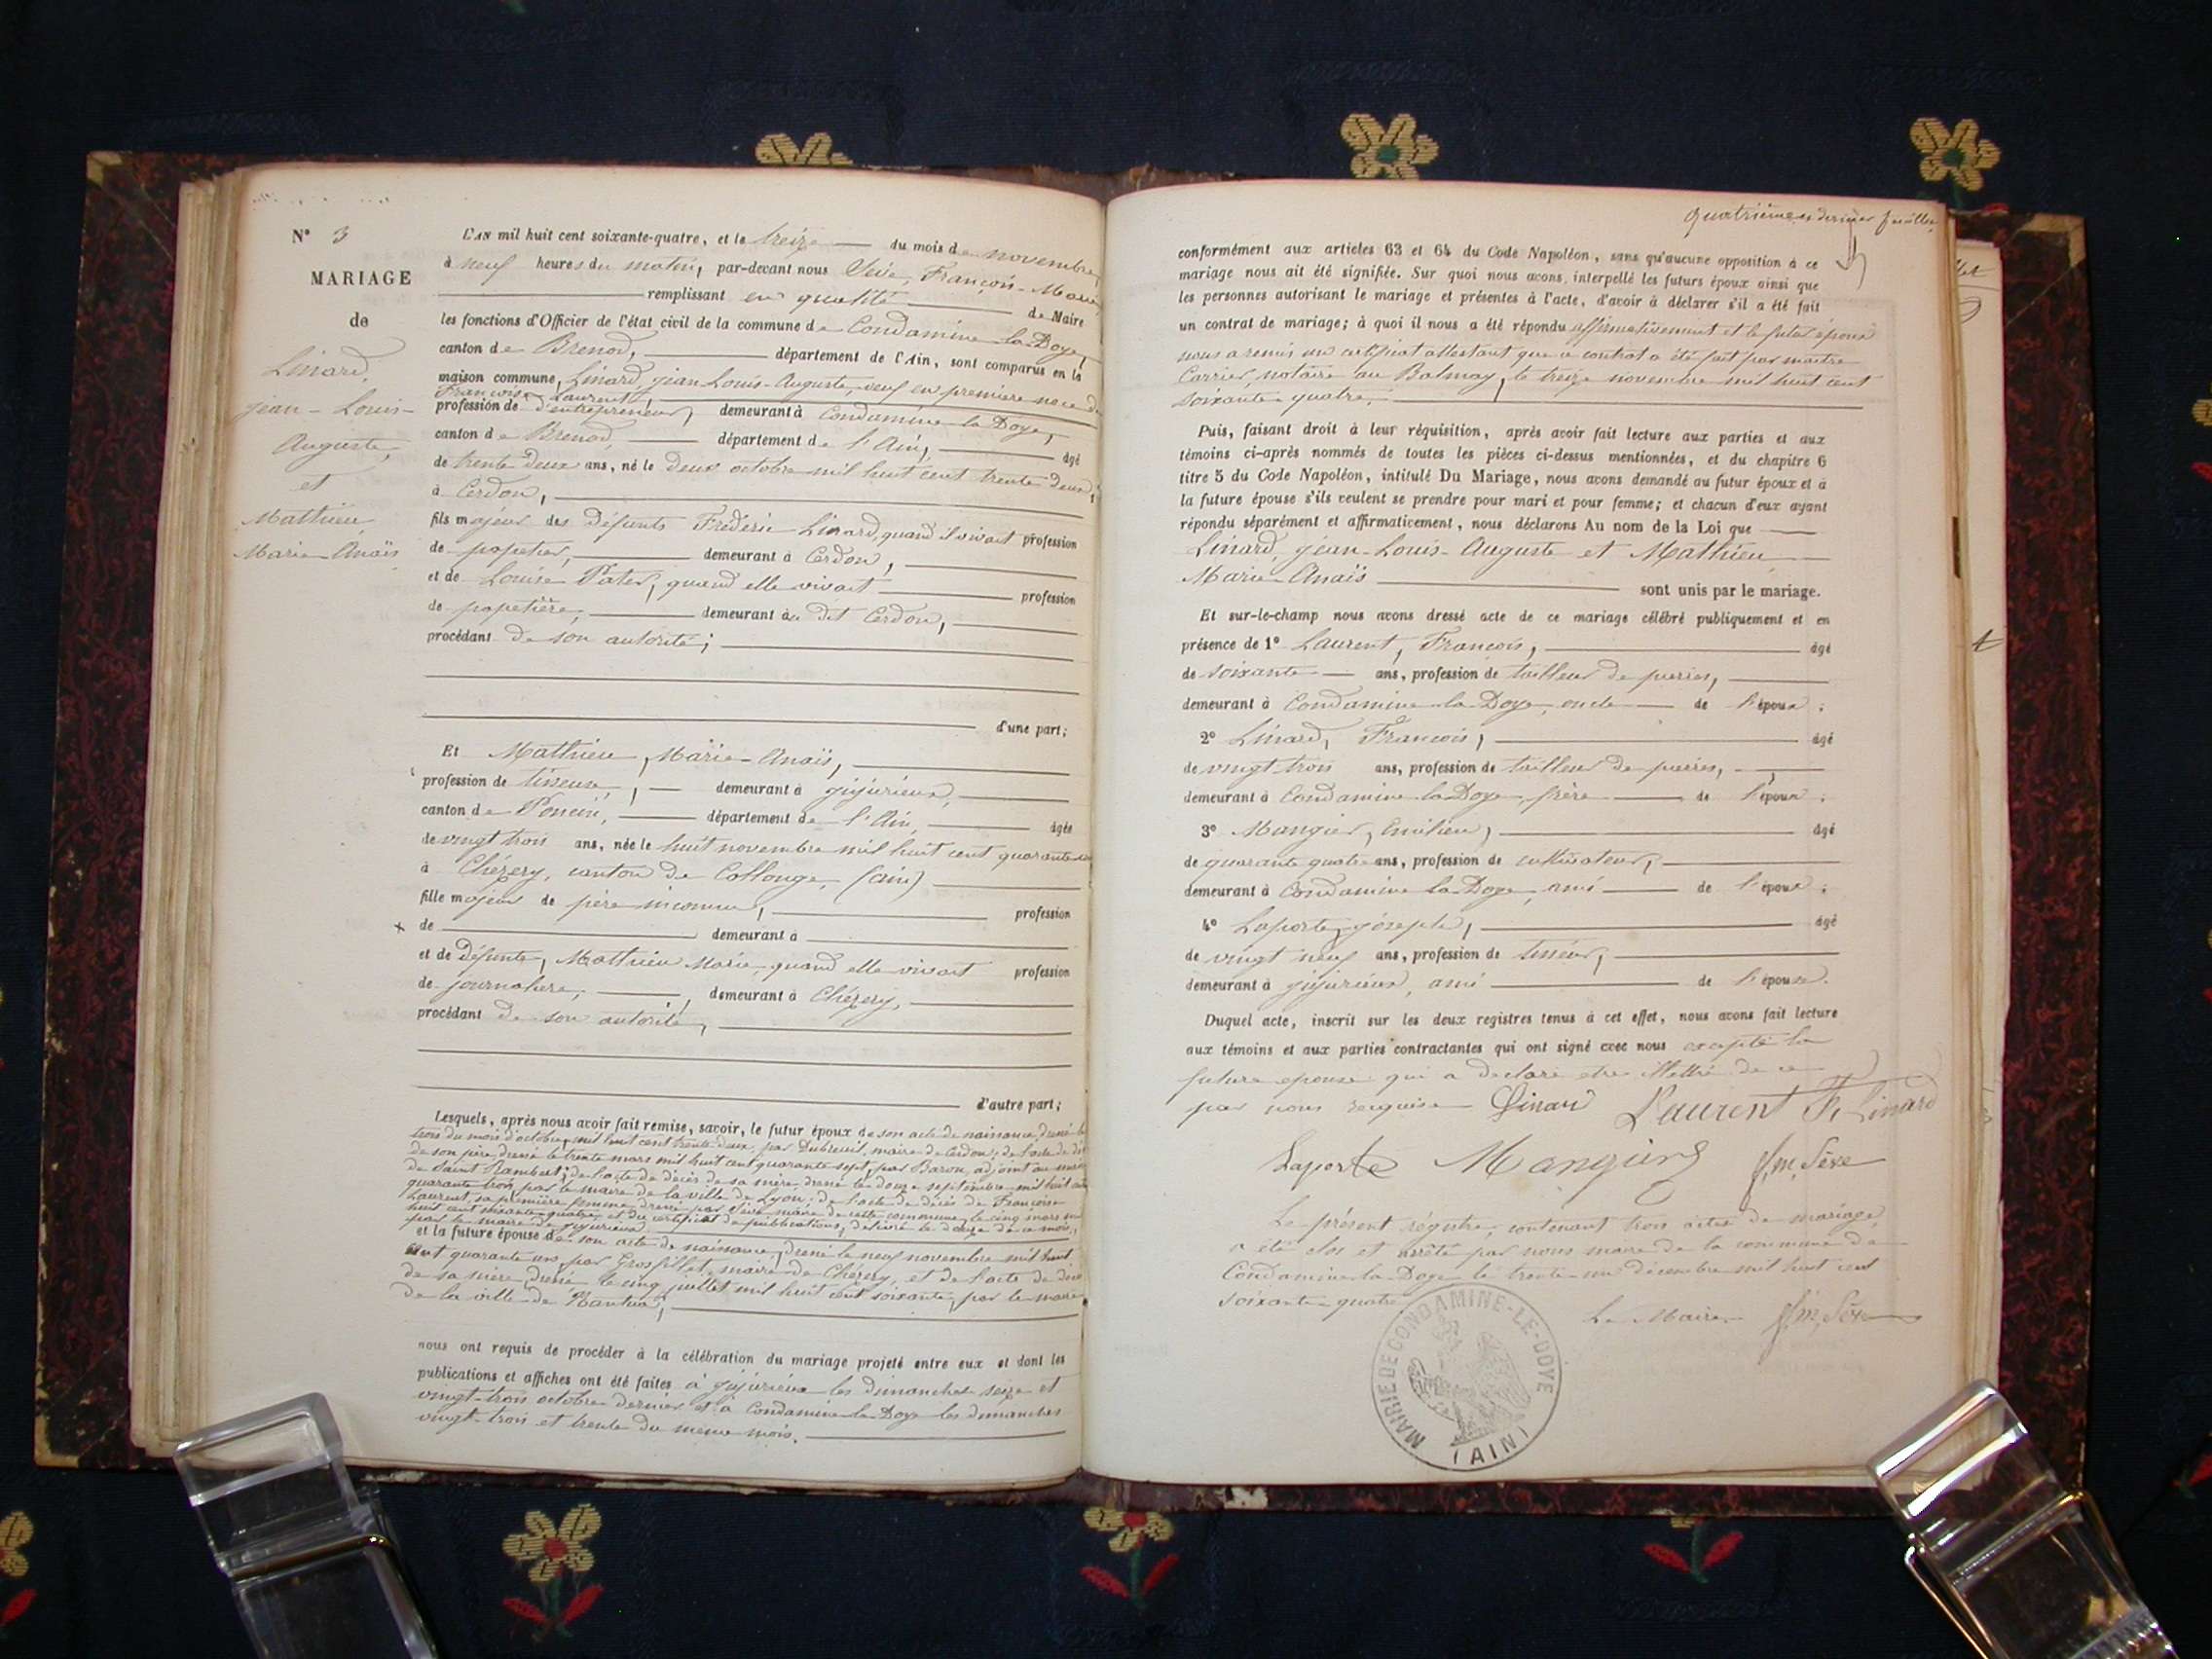 N° 3
MARIAGE
de
Linard,
jean-Louis-
Auguste,
et
Mathieu
Marie-Anaïs
L'AN mil huit cent soixante-quatre, et le treize du mois de novembre,
à neuf heures du matin, par-devant nous Sève, François-Marie,
remplissant en qualité de Maire
les fonctions d'Officier de l'état civil de la commune de Condamine-la-Doye,
canton de Brenod, département de l'Ain, sont comparus en la
maison commune, Linard, jean-Louis-Auguste, veuf en première noce de
Françoise Laurent,
profession de d'entrepreneur, demeurant à Condamine-la-Doye,
canton de Brenod, département de l'Ain, âgé
de trente deux ans, né le deux octobre mil huit cent trente deux,
à Cerdon,
fils majeur des défunts Frédéric Linard, quand il vivait profession
de papetier, demeurant à Cerdon,
et de Louise Pater, quand elle vivait profession
de papetière, demeurant au dit Cerdon,
procédant de son autorité;
d'une part;
Et Mathieu, Marie-Anaïs,
profession de tisseuse, demeurant à jujurieux,
canton de Poncin, département de l'Ain, âgée
de vingt trois ans, née le huit novembre mil huit cent quarante
à Chézery, canton de Collonge, (ain)
fille majeur de père inconnu, profession
de demeurant à
et de défunte, Mathieu Marie quand elle vivait profession
de journalière, demeurant à Chézery,
procédant de son autorité,
d'autre part;
Lesquels, après nous avoir fait remise, savoir, le futur époux de son acte de naissance, dressé le
trois du mois d'octobre mil huit cent trente-deux, par Dubreuil, maire de Cerdon; de l'acte de
de son père, dressé le trente mars mil huit cent quarante sept, par Baron, adjoint au maire
de Saint Rambert; de l'acte de décès de sa mère, dressé le douze septembre mil huit cent
quarante trois, par le maire de la ville de Lyon; de l'acte de décès de Françoise
Laurent, sa première femme, dressé par Sève maire de cette commune, le cinq mars mil
huit cent soixante-quatre, et du certificat de publications, délivré le douze de ce mois,
par le maire de jujurieux
et la future épouse de son acte de naissance, dressé le neuf novembre mil huit
cent quarante un par Grosfillet, maire de Chézery, et de l'acte de décès
de sa mère, dressé le cinq juillet mil huit cent soixante, par le maire
de la ville de Nantua,
nous ont requis de procéder à la célébration du mariage projeté entre eux et dont les
publications et affiches ont été faites à jujurieux les dimanches seize et
vingt-trois octobre dernier et à Condamine-la-Doye les dimanches
vingt-trois et trente du même mois.
quatrième et dernier feuillet
conformément aux articles 63 et 64 du Code Napoléon, sans qu'aucune opposition à ce
mariage nous ait été signifiée. Sur quoi nous avons interpellé les futurs époux ainsi que
les personnes autorisant le mariage et présentes à l'acte, d'avoir à déclarer s'il a été fait
un contrat de mariage; à quoi il nous a été répondu affirmativement et le futur époux
nous a remis un certificat attestant que ce contrat a été fait par maître
Carrier, notaire au Balmay, le treize novembre mil huit cent
soixante quatre.
Puis, faisant droit à leur réquisition, après avoir fait lecture aux parties et aux
témoins ci-après nommés de toutes les pièces ci-dessus mentionnées, et du chapitre 6
titre 5 du Code Napoléon, intitulé Du Mariage, nous avons demandé au futur époux et à
la future épouse s'ils veulent se prendre pour mari et pour femme; et chacun d'eux ayant
répondu séparément et affirmativement, nous déclarons Au nom de la Loi que
Linard, jean-Louis-Auguste et Mathieu
Marie-Anaïs
sont unis par le mariage.
Et sur-le-champ nous avons dressé acte de ce mariage célébré publiquement et en
présence de 1° Laurent, François, âgé
de soixante ans, profession de tailleur de pierres,
demeurant à Condamine-la-Doye, oncle de l'époux;
2° Linard, François, âgé
de vingt trois ans, profession de tailleur de pierres,
demeurant à Condamine la Doye, frère de l'époux;
3° Mangier, Emilien, âgé
de quarante quatre ans, profession de cultivateur,
demeurant à Condamine la Doye, ami de l'époux;
4° Laporte, joseph, âgé
de vingt neuf ans, profession de tisseur,
demeurant à jujurieux, ami de l'épouse.
Duquel acte, inscrit sur les deux registres tenus à cet effet, nous avons fait lecture
aux témoins et aux parties contractantes qui ont signé avec nous excepté la
future epouse qui a declaré etre illettré de ce
par nous requise Linard Laurent F. Linard
Laporte Mangier f.m. Sève
Le présent régistre, contenant trois actes de mariage,
a été clos et arrêté par nous maire de la commune de
Condamine-la-Doye le trente-un décembre mil huit cent
soixante quatre
Le Maire f.m. Sève
MAIRIE DE CONDAMINE-LE-DOYE
(AIN)